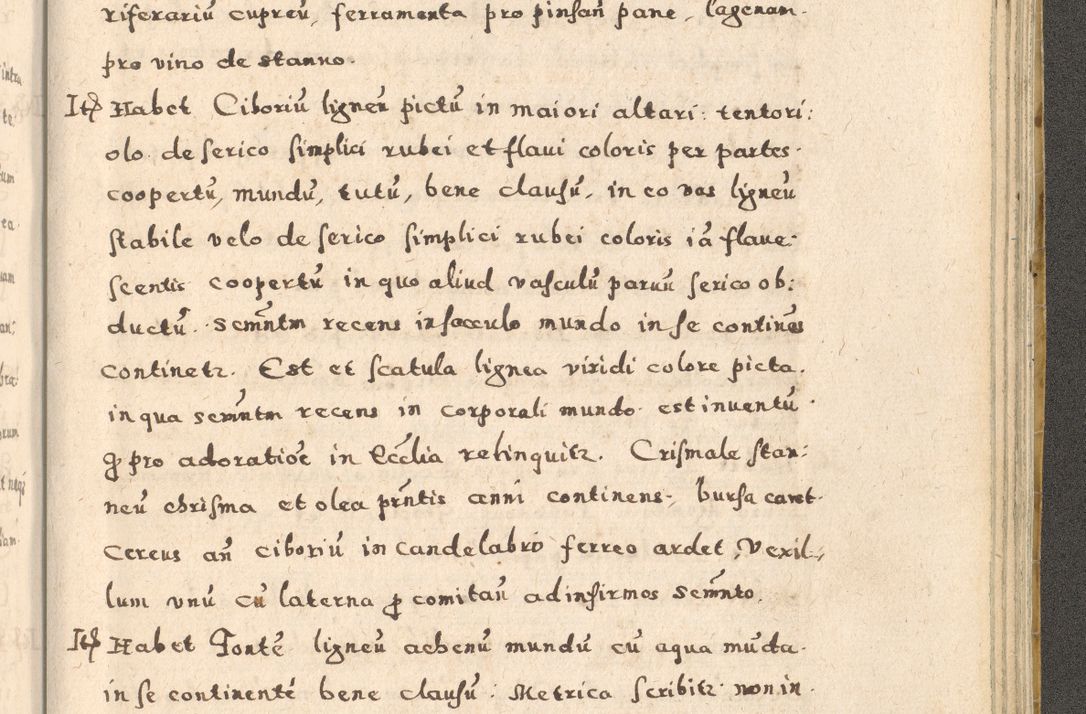 riferariū cupreū, ferramenta pro pinsań pane, lagenam
pro vino de stanno.
Itꝫ Habet Ciboriū ligneū pictū in maiori altari: tentori:
olo de serico simplici rubei et flaui coloris per partes.
coopertū, mundū, tutū, bene clausū, in eo vas ligneū
stabile velo de serico simplici rubei coloris iā flaue:
scentis coopertū in quo aliud vasculū paruū serico ob:
ductū. semn̄tm recens in sacculo mundo in se continēs
continetr. Est et scatula lignea viridi colore picta.
in qua semn̄tm recens in corporali mundo est inuentū.
ꝙ pro adoratiōe in Eccl̄ia relinquitr. Crismale stan:
neū chrisma et olea prn̄tis anni continens, bursa caret.
Cereus an̄ ciboriū in candelabro ferreo ardet, Vexil:
lum vnū cū laterna ꝓ comitan̄ ad infirmos semn̄to.
Itꝫ Habet Fontē ligneū aehenū mundū cū aqua mūda
in se continentē bene clausū: Metrica scribitr non in